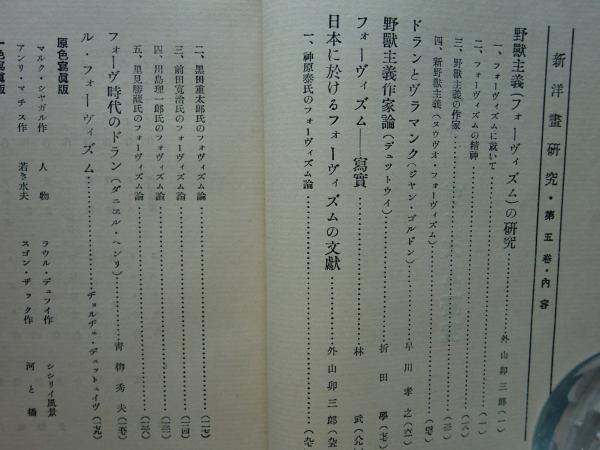 新洋畫研究・第五卷・内容
野獸主義(フォーヴィズム)の研究 外山卯三郎(一)
一、フォーヴィズムに就いて (一)
二、フォーヴィズムの精神
三、野獸主義の作家
四、新野獸主義(ヌウヴオ・フォーヴィズム)
ドランとヴラマンク(ジャン・ゴルドン) 早川孝之
野獸主義作家論(デュツトウイ) 折田學
フォーヴィズム——寫實 林武
日本に於けるフォーヴィズムの文獻 外山卯三郎
一、神原泰氏のフォーヴィズム論
二、黒田重太郎氏のフォヴィズム論
三、前田寛治氏のフォーヴィズム論
四、川島理一郎氏のフォーヴィズム論
五、里見勝藏氏のフォーヴィズム論
フォーヴ時代のドラン(ダニエル・ヘンリ) 青柳秀夫
ル・フォーヴィズム ヂョルヂュ・デュットゥイヴ
原色寫眞版
マルク・シャガル作 人物 ラウル・デュフイ作 シシリイ風景
アンリ・マチス作 若き水夫 スゴン・ザック作 河と橋
一色寫眞版